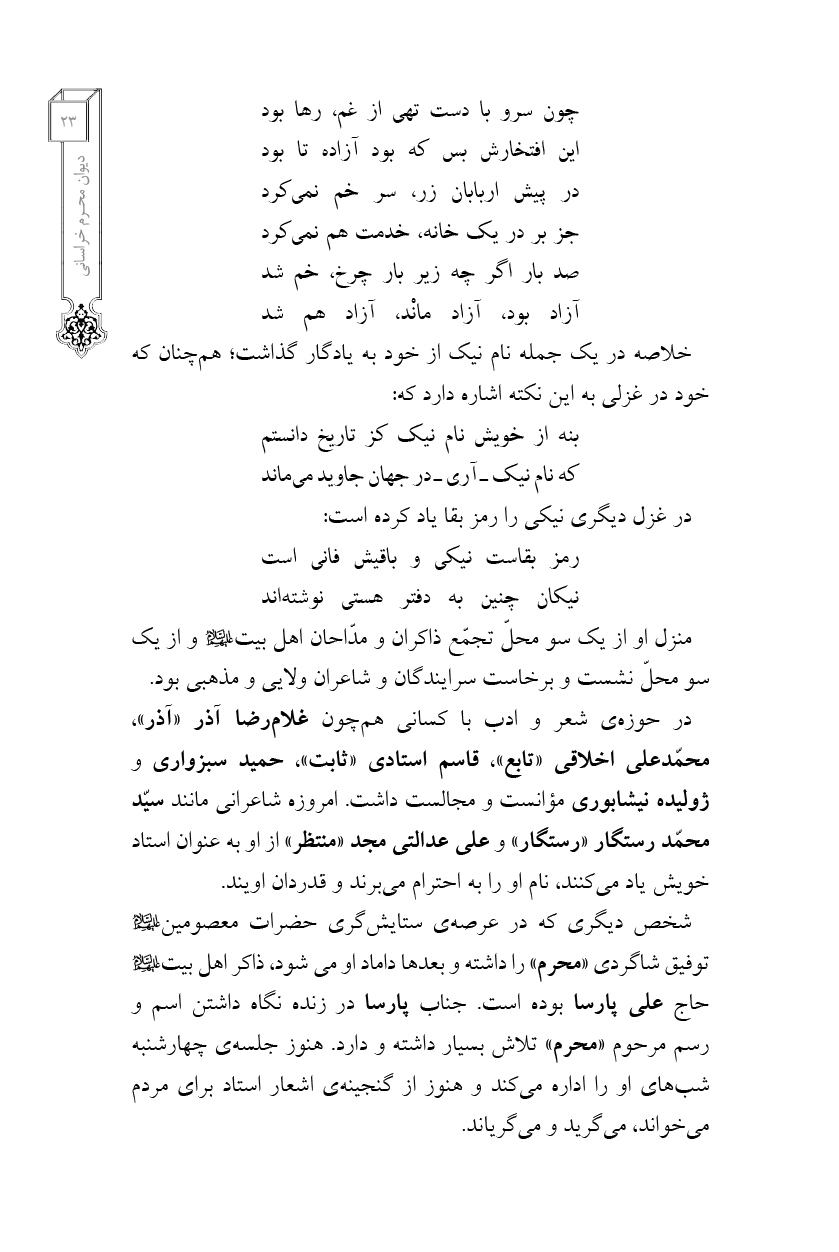 ۲۳
دیوان محرم خراسانی
چون سرو با دست تهی از غم، رها بود
این افتخارش بس که بود آزاده تا بود
در پیش اربابان زر، سر خم نمی‌کرد
جز بر در یک خانه، خدمت هم نمی‌کرد
صد بار اگر چه زیر بار چرخ، خم شد
آزاد بود، آزاد مانْد، آزاد هم شد
خلاصه در یک جمله نام نیک از خود به یادگار گذاشت؛ هم‌چنان که
خود در غزلی به این نکته اشاره دارد که:
بنه از خویش نام نیک کز تاریخ دانستم
که نام نیک ـ آری ـ در جهان جاوید می‌ماند
در غزل دیگری نیکی را رمز بقا یاد کرده است:
رمز بقاست نیکی و باقیش فانی است
نیکان چنین به دفتر هستی نوشته‌اند
منزل او از یک سو محلّ تجمّع ذاکران و مدّاحان اهل بیت علیهم‌السلام و از یک
سو محلّ نشست و برخاست سرایندگان و شاعران ولایی و مذهبی بود.
در حوزه‌ی شعر و ادب با کسانی هم‌چون غلام‌رضا آذر «آذر»،
محمّدعلی اخلاقی «تابع»، قاسم استادی «ثابت»، حمید سبزواری و
ژولیده نیشابوری مؤانست و مجالست داشت. امروزه شاعرانی مانند سیّد
محمّد رستگار «رستگار» و علی عدالتی مجد «منتظر» از او به عنوان استاد
خویش یاد می‌کنند، نام او را به احترام می‌برند و قدردان اویند.
شخص دیگری که در عرصه‌ی ستایش‌گری حضرات معصومین علیهم‌السلام
توفیق شاگردی «محرم» را داشته و بعدها داماد او می شود، ذاکر اهل بیت علیهم‌السلام
حاج علی پارسا بوده است. جناب پارسا در زنده نگاه داشتن اسم و
رسم مرحوم «محرم» تلاش بسیار داشته و دارد. هنوز جلسه‌ی چهارشنبه
شب‌های او را اداره می‌کند و هنوز از گنجینه‌ی اشعار استاد برای مردم
می‌خواند، می‌گرید و می‌گریاند.